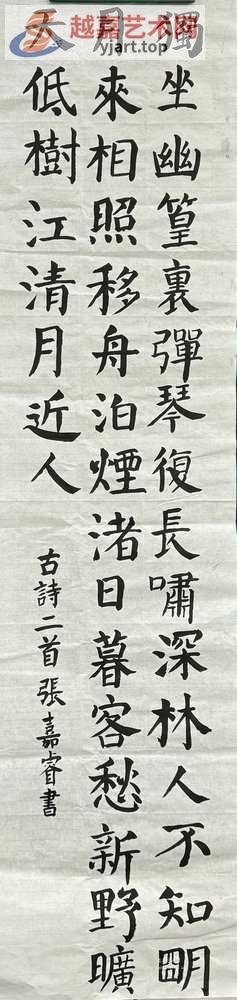 越嘉艺术网
yjart.top
獨坐幽篁裏彈琴復長嘯深林人不知朙
月來相照移舟泊煙渚日暮客愁新野曠
天低樹江清月近人
古詩二首張嘉睿書